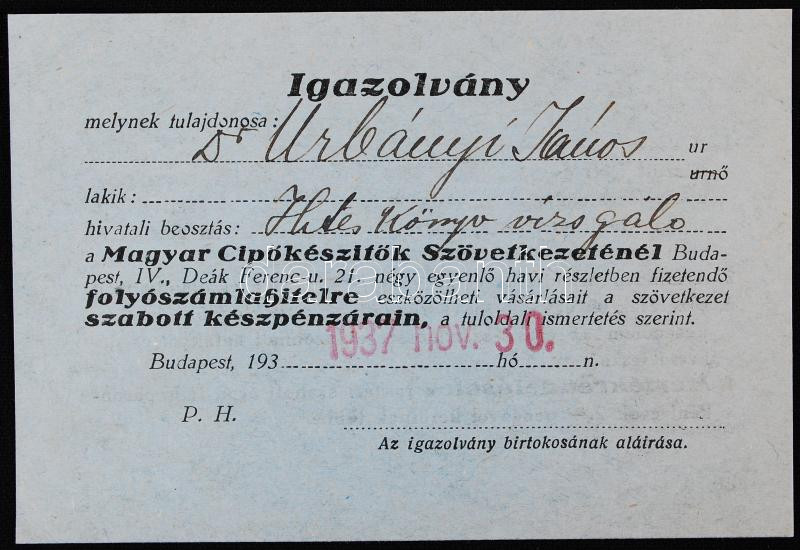 Igazolvány
melynek tulajdonosa:
Dr Urbányi János ur
urnő
lakik:
hivatali beosztás: Hites Könyv vizsgáló
a Magyar Cipőkészitők Szövetkezeténél Buda-
pest, IV., Deák Ferenc-u. 21. négy egyenlő havi részletben fizetendő
folyószámlahitelre eszközölheti vásárlásait a szövetkezet
szabott készpénzárain, a tuloldali ismertetés szerint.
1937 nov. 30.
Budapest, 193 hó n.
P. H.
Az igazolvány birtokosának aláirása.
darabanth